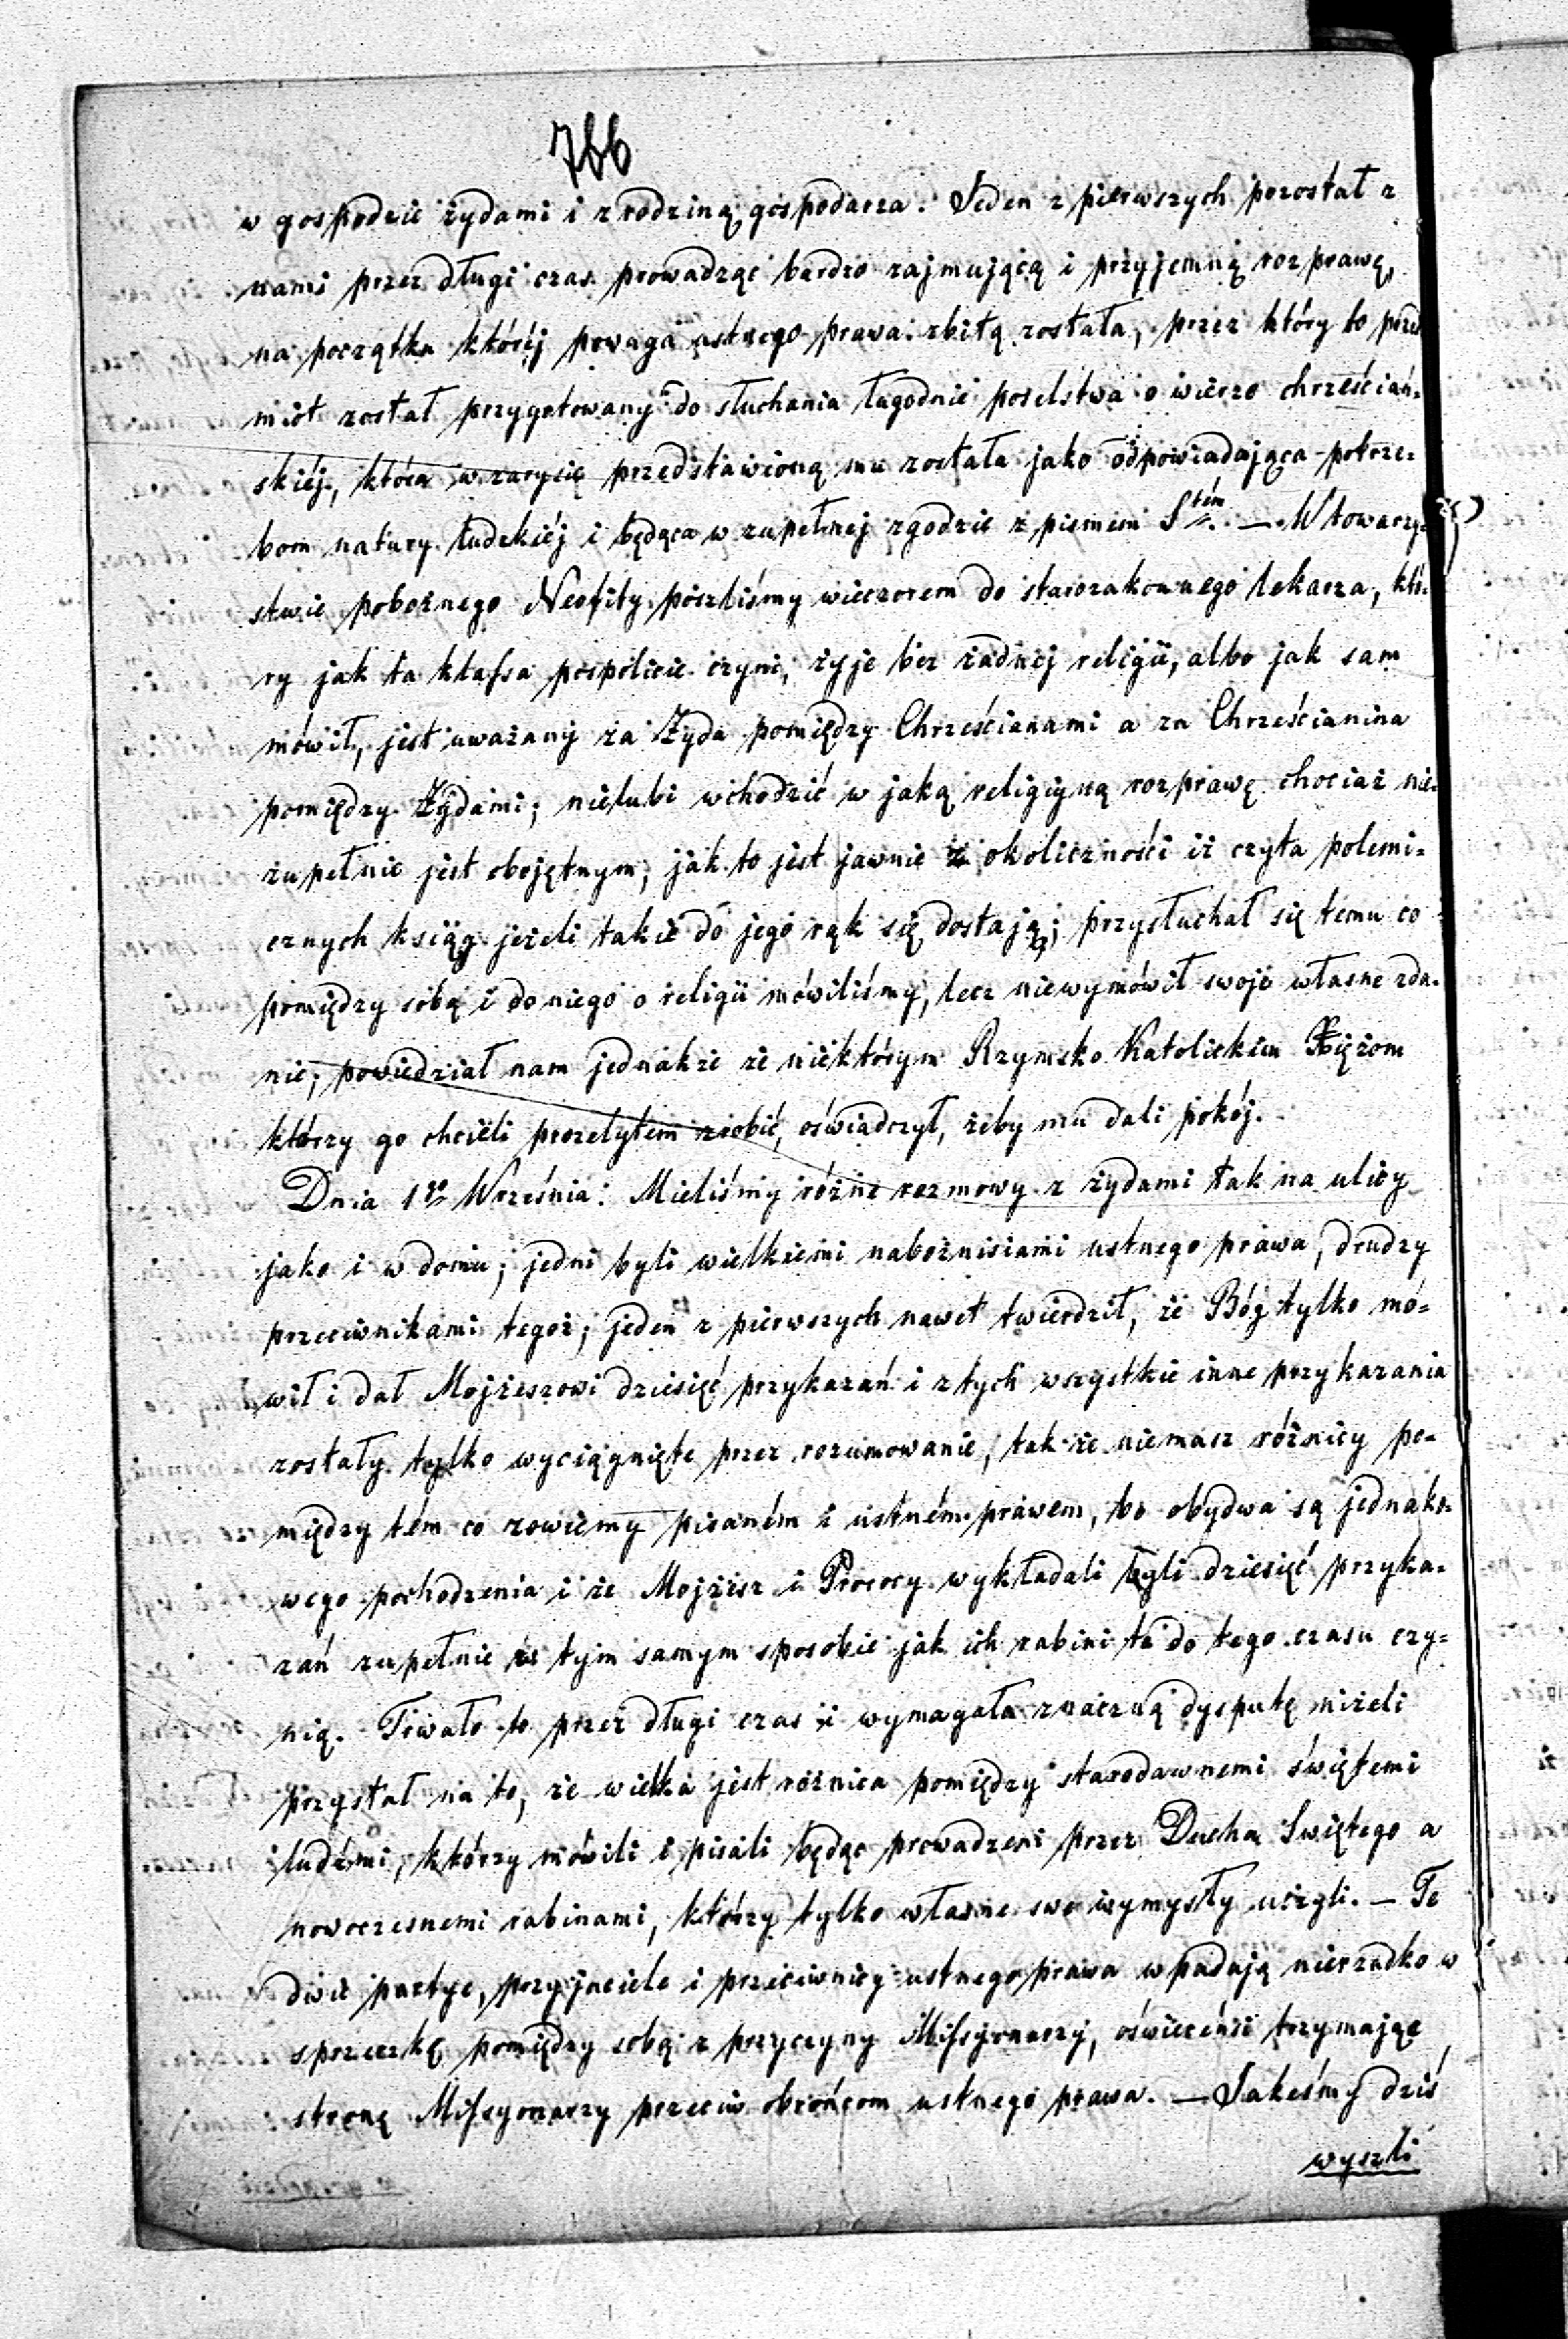 766
w gospodzie żydami i z rodziną gospodarza. Jeden z pierwszych pozostał z
nami przez długi czas prowadząc bardzo zajmującą i przyjemną rozprawę,
na początku któréj powaga ustnego prawa zbitą została, przez który to przed
miot został przygotowany do słuchania łagodnie poselstwa o wierze chrześciań-
skiéj, która w zarysie przedstawioną mu została jako odpowiadająca potrze-
bom natury ludzkiéj i będąca w zupełnej zgodzie z pismem Stém. — W towarzy-
stwie pobożnego Neofity poszliśmy wieczorem do starozakonnego lekarza, któ-
ry jak ta klassa pospolicie czyni, żyje bez żadnej religii, albo jak sam
mówił, jest uważany za Żyda pomiędzy Chrześcianami a za Chrześcianina
pomiędzy Żydami; nielubi wchodzić w jaką religijną rozprawę chociaż nie-
zupełnie jest obojętnym, jak to jest jawnie z okoliczności iż czyta polemi-
cznych ksiąg jeżeli takie do jego rąk się dostają; przysłuchał się temu co
pomiędzy sobą i do niego o religii mówiliśmy, lecz niewymówił swoje własne zda-
nie; powiedział nam jednakże że niektórym Rzymsko Katolickim Xiężom
którzy go chcieli prozelytem zrobić, oświadczył, żeby mu dali pokój.
Dnia 1go Września: Mieliśmy różne rozmowy z żydami tak na ulicy
jako i w domu; jedni byli wielkiemi nabożnisiami ustnego prawa, drudzy
przeciwnikami tegoż; jeden z pierwszych nawet twierdził, że Bóg tylko mó-
wił i dał Mojżeszowi dziesięć przykazań i z tych wszystkie inne przykazania
zostały tylko wyciągnięte przez rozumowanie, tak że niemasz różnicy po-
między tém co zowiemy pisaném i ustném prawem, bo obydwa są jednako-
wego pochodzenia i że Mojżesz i Prorocy wykładali byli dziesięć przyka-
zań zupełnie w tym samym sposobie jak ich rabini to do tego czasu czy-
nią. Trwało to przez długi czas i wymagała znaczną dysputę niżeli
przystał na to, że wielka jest różnica pomiędzy starodawnemi świętemi
ludźmi, którzy mówili i pisali będąc prowadzeni przez Ducha Swiętego a
nowoczesnemi rabinami, którzy tylko własne swe wymysły uczyli. — Te
dwie partye, przyjaciele i przeciwnicy ustnego prawa wpadają nierzadko w
sprzeczkę pomiędzy sobą z przyczyny Missyonarzy, oświeceńsi trzymając
stronę Missyonarzy przeciw obrońcom ustnego prawa. — Jakeśmy dziś
wyszli